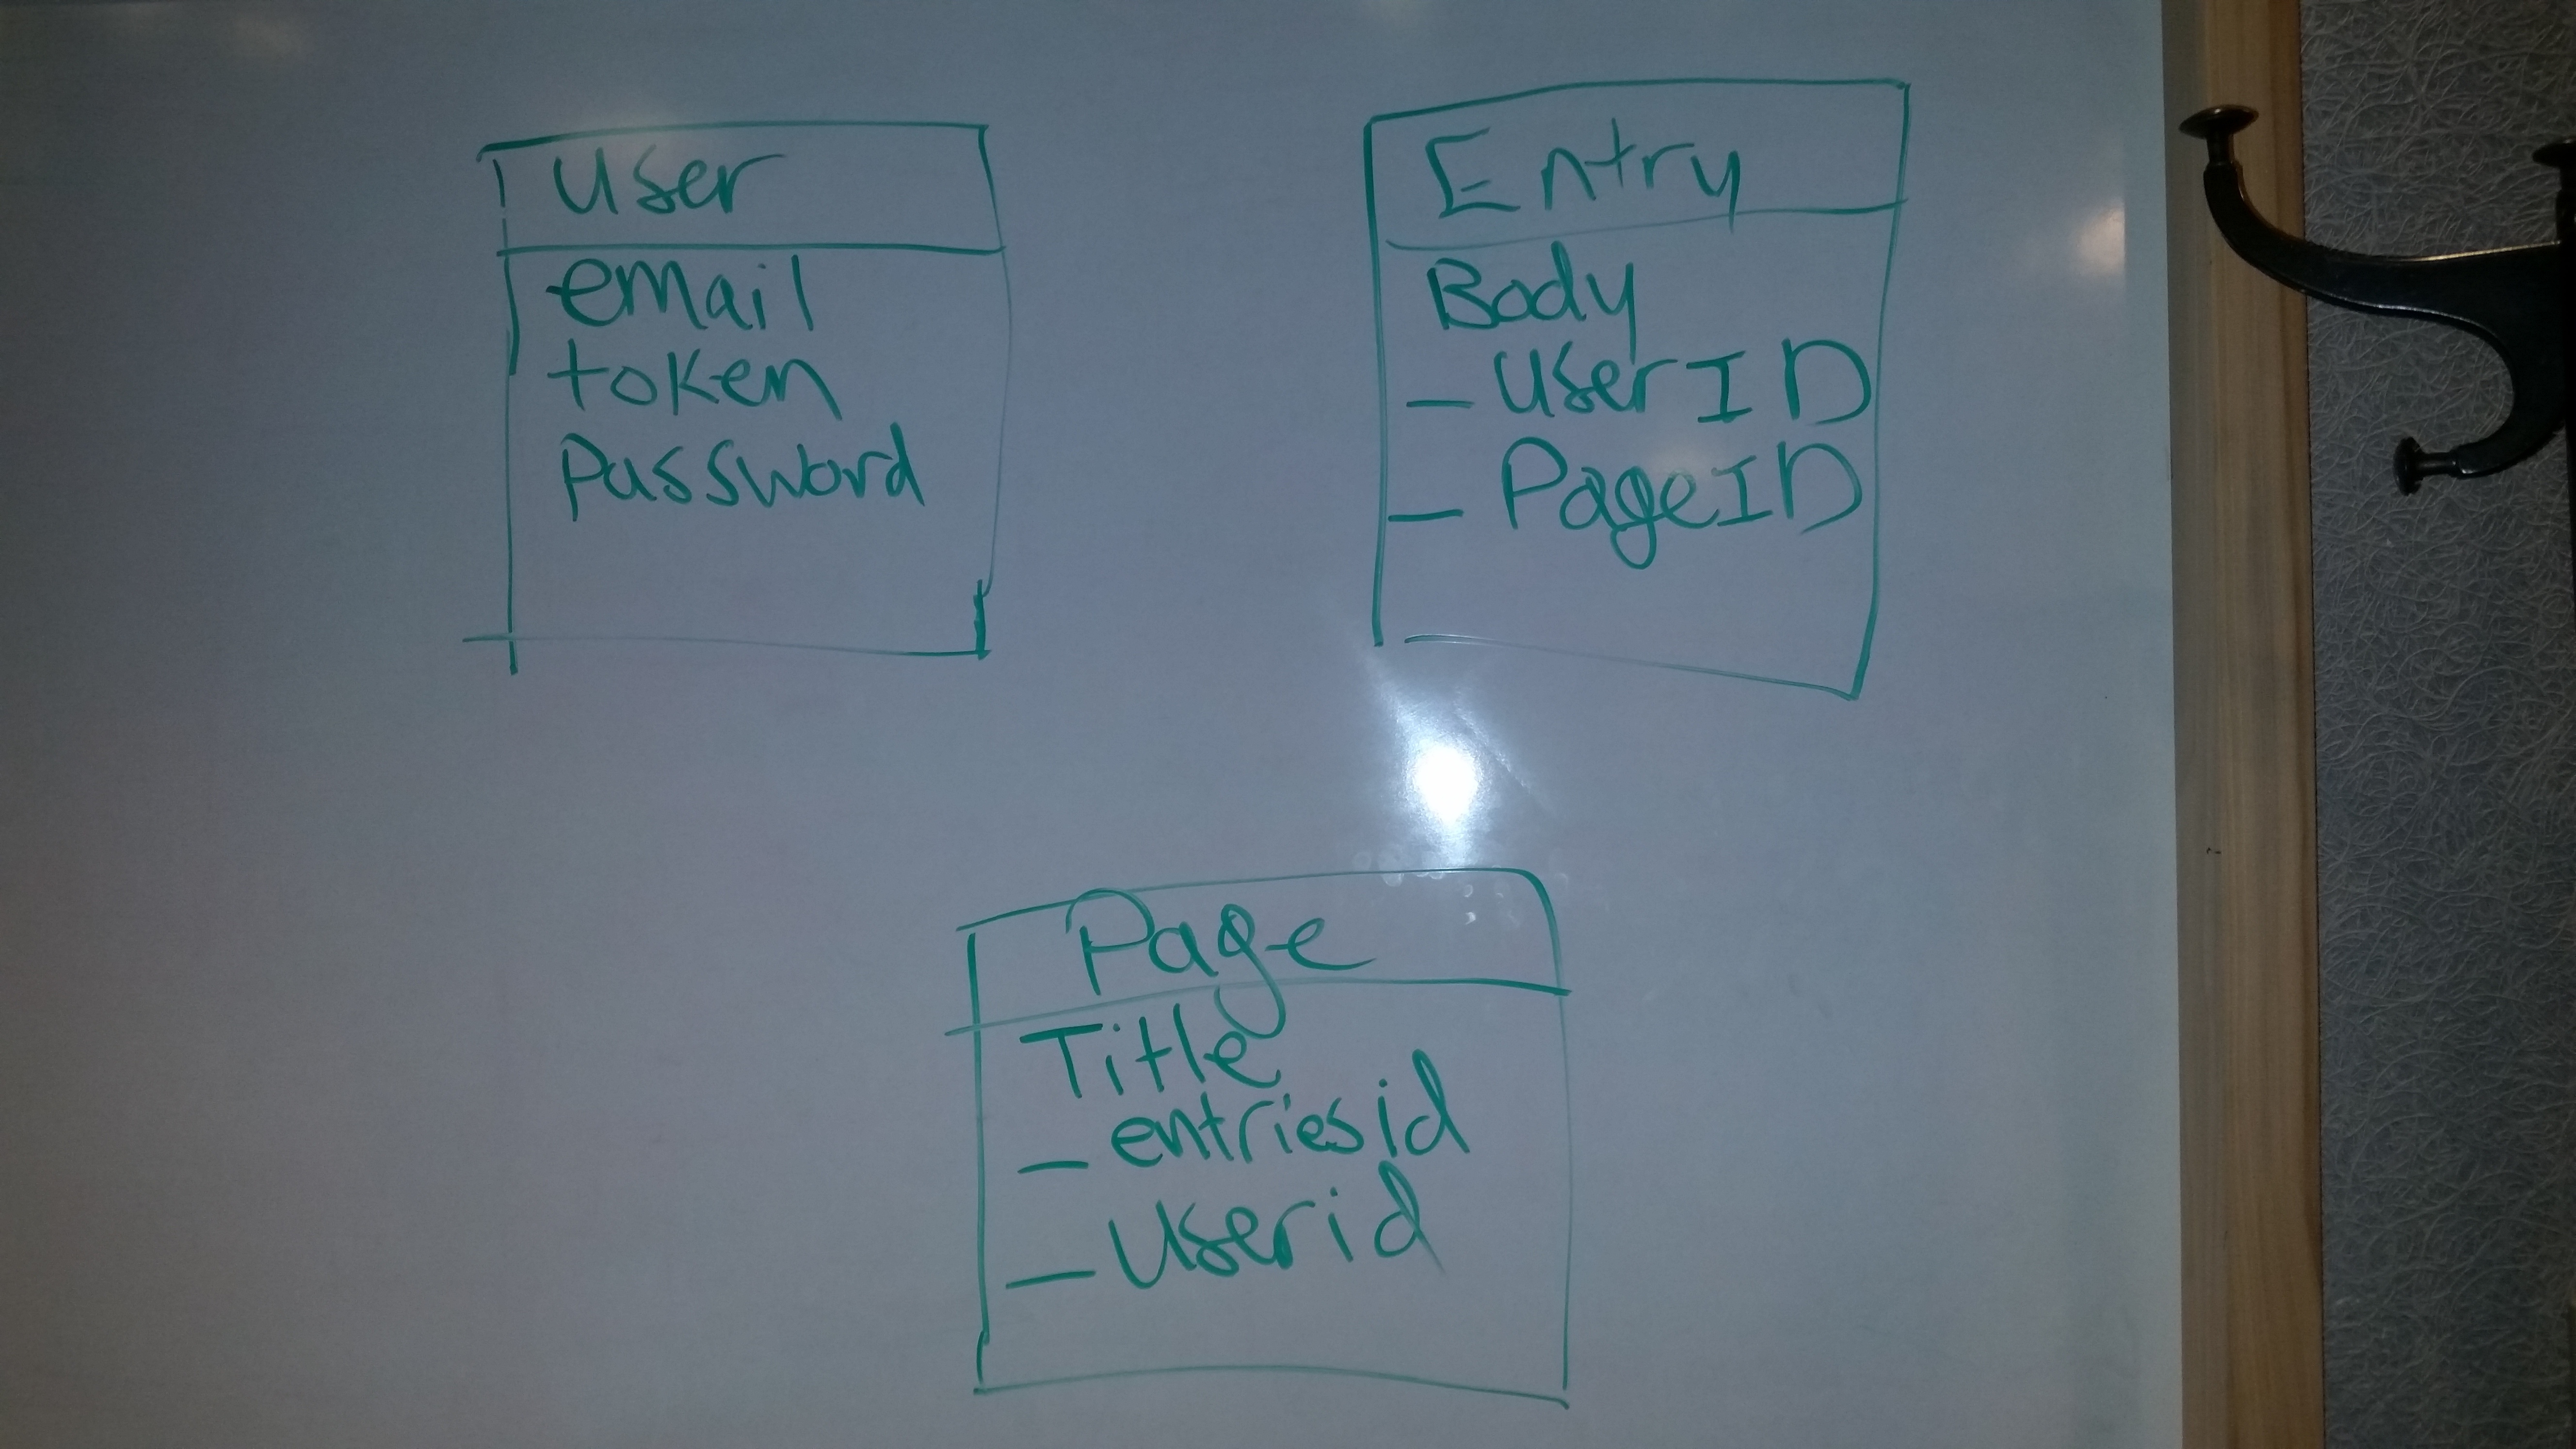 User
email
token
Password
Entry
Body
_ User ID
_ PageID
Page
Title
_ entries id
_ User id